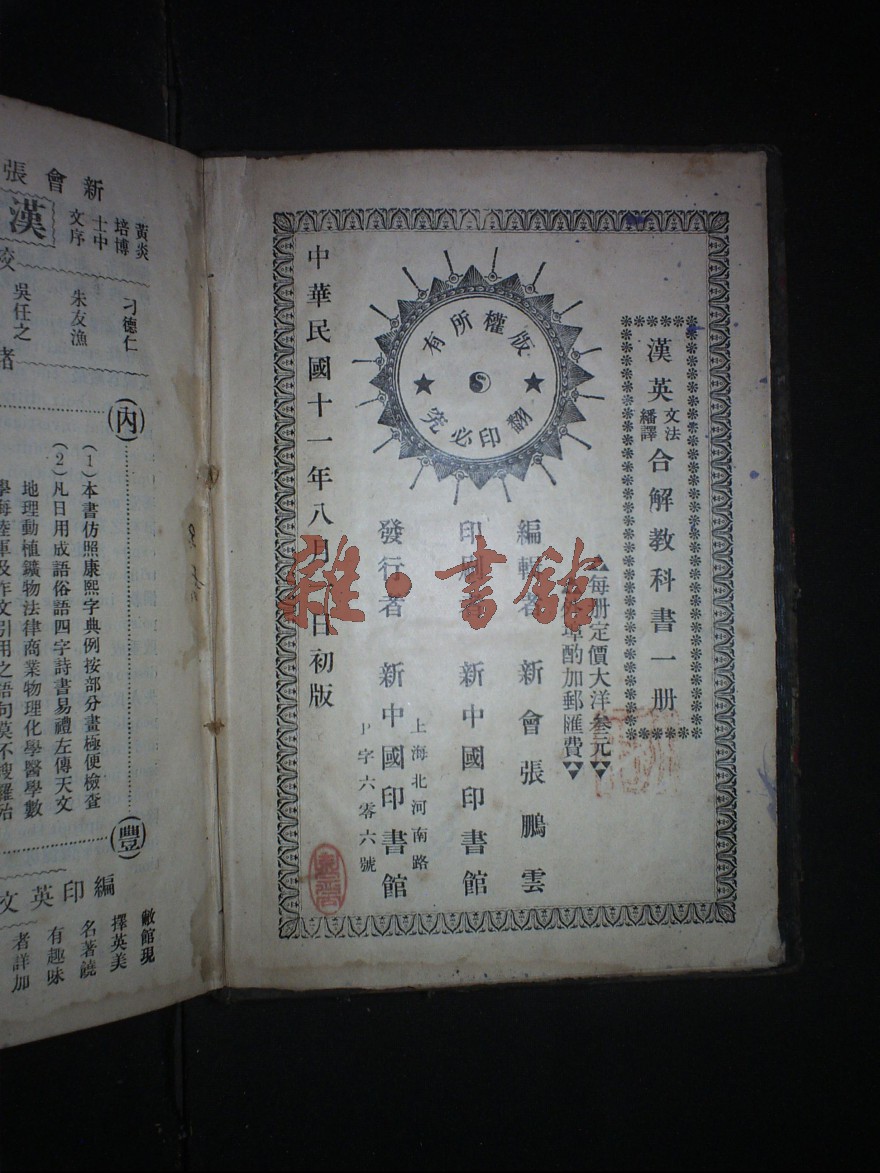 漢英文法繙譯合解教科書一册
▲每册定價大洋叁元▼
酌加郵匯費▼
版權所有
翻印必究
編輯者 新會張鵬雲
印刷者 新中國印書館
發行者 新中國印書館
上海北河南路
字六零六號
中華民國十一年八月 日初版
雜·書館
新會張
漢
黃炎培博士中文序
刁德仁
朱友漁
吳任之
校
內
豐
(1)本書仿照康熙字典例按部分畫極便檢查
(2)凡日用成語俗語四字詩書易禮左傳天文
地理動植鑛物法律商業物理化學醫學數
學海陸軍及作文引用之語句莫不搜羅殆
編印英文
敝館現
擇英美
名著饒
有趣味
者詳加